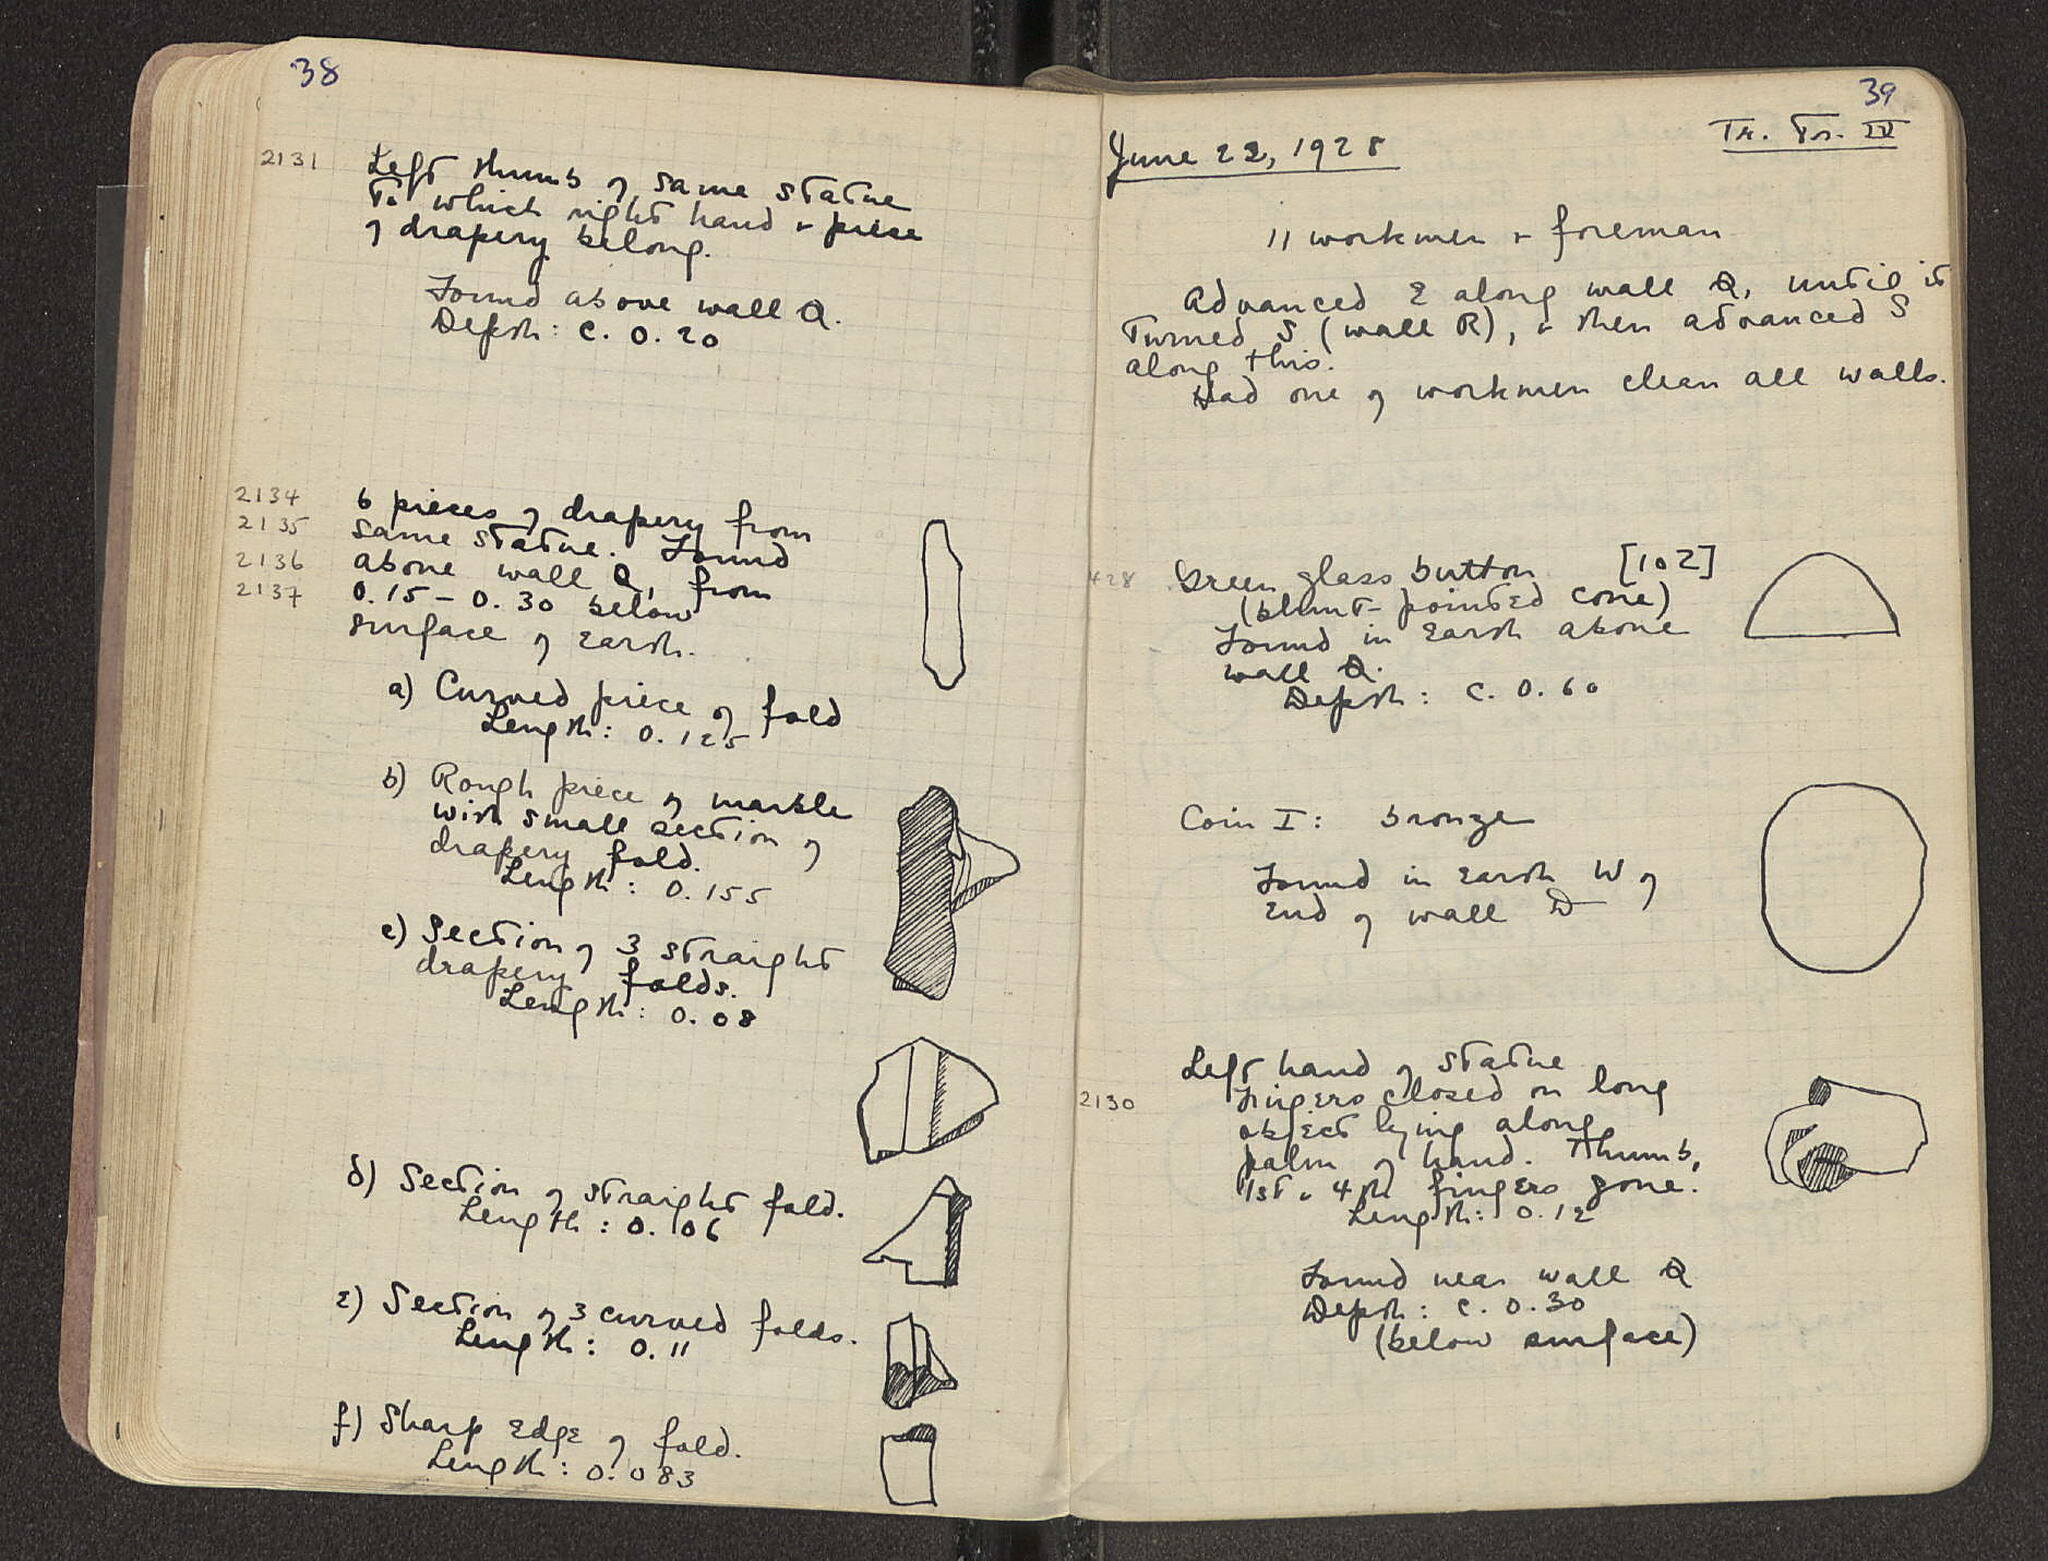 38
2131 Left thumb of same statue
to which right hand + piece
of drapery belong.
Found above wall Q.
Depth: c. 0.20
2134 6 pieces of drapery from
2135 same statue. Found
2136 above wall Q, from
2137 0.15 - 0.30 below
surface of earth.
a) Curved piece of fold
Length: 0.125
b) Rough piece of marble
with small section of
drapery fold.
Length: 0.155
c) Section of 3 straight
drapery folds.
Length: 0.08
d) Section of straight fold.
Length: 0.106
e) Section of 3 curved folds.
Length: 0.11
f) Sharp edge of fold.
Length: 0.083
39
Tr. Tr. IV
June 22, 1928
11 workmen + foreman
Advanced E along wall Q, until it
turned S (wall R), + then advanced S
along this.
Had one of workmen clean all walls.
428 Green glass button [102]
(blunt-pointed cone)
Found in earth above
wall Q.
Depth: c. 0.60
Coin I: bronze
Found in earth W of
end of wall D
Left hand of statue
2130 Fingers closed on long
object lying along
palm of hand. Thumb,
1st + 4th fingers gone.
Length: 0.12
Found near wall Q
Depth: c. 0.30
(below surface)